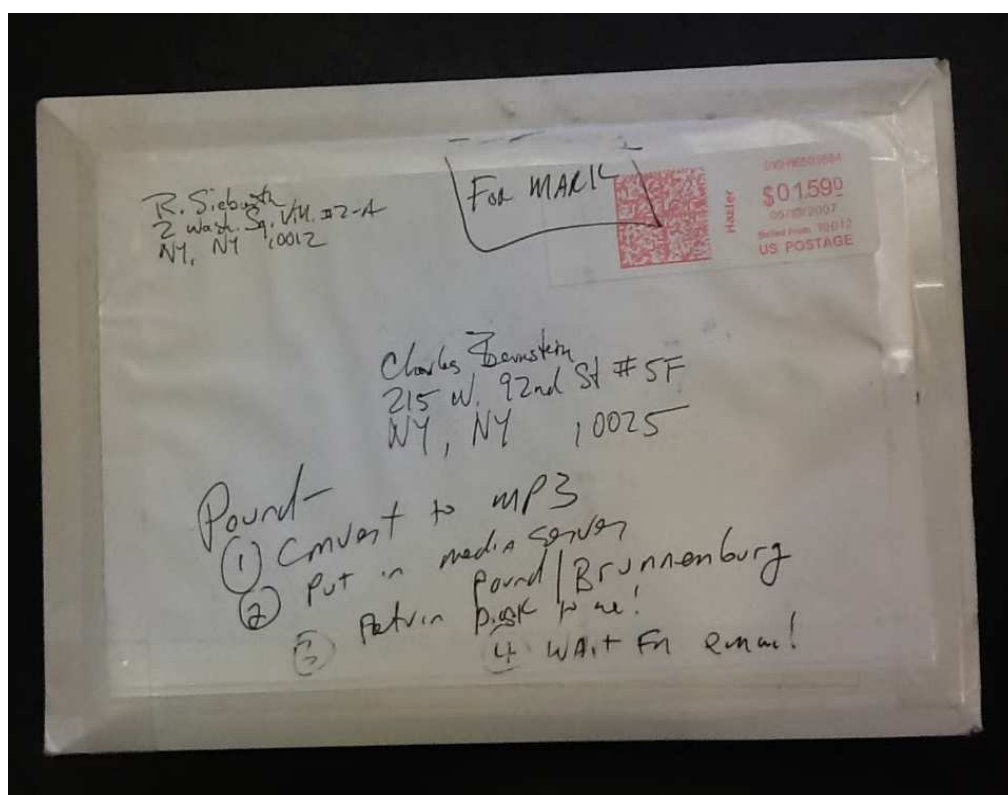 R. Sieburth
2 Wash. Sq. Vill. #2-A
NY, NY 10012
FOR MARK
$01.590
05/10/2007
Mailed From 10012
US POSTAGE
Hasler
Charles Bernstein
215 W. 92nd St #5F
NY, NY 10025
Pound-
1 Convert to MP3
2 Put in media server
Pound/Brunnenburg
3 Return Disk to me!
4 WAIT FOR email!